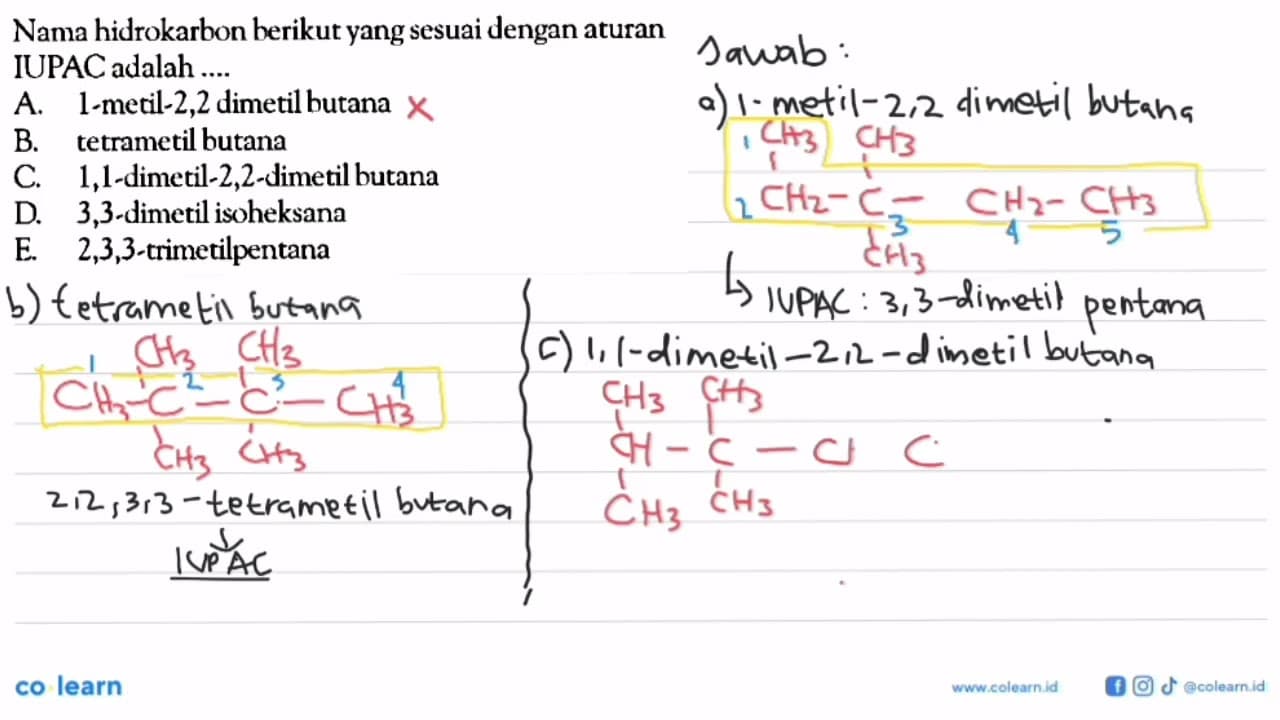 Nama hidrokarbon berikut yang sesuai dengan aturan
IUPAC adalah ....
A. 1-metil-2,2 dimetil butana X
B. tetrametil butana
C. 1,1-dimetil-2,2-dimetil butana
D. 3,3-dimetil isoheksana
E. 2,3,3-trimetilpentana
Jawab :
a) 1-metil-2,2 dimetil butana
1 CH3 CH3
2 CH2 - C - CH2 - CH3
3 4 5
CH3
↳ IUPAC : 3,3-dimetil pentana
b) tetrametil butana
CH3 CH3
1 2 3 4
CH3 - C - C - CH3
CH3 CH3
2,2,3,3-tetrametil butana
↓
IUPAC
c) 1,1-dimetil-2,2-dimetil butana
CH3 CH3
CH - C - C C
CH3 CH3
co learn
www.colearn.id
@colearn.id